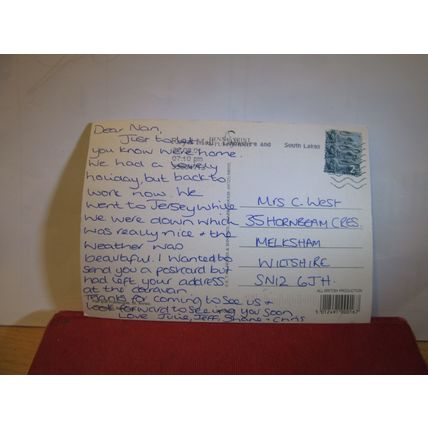 Dear Nan,
Just to let
you know were home.
We had a lovely
holiday, but back to
work now. We
went to Jersey while
we were down which
was really nice + the
weather was
beautiful. I wanted to
send you a postcard but
had left your address
at the caravan.
Thanks for coming to see us +
look forward to seeing you soon.
Love Julie, Jeff, Shane + Chris
South Lakes
07:10 pm
Mrs C. West
35 HORNBEAM CRES
MELKSHAM
WILTSHIRE
SN12 6JH
ALL BRITISH PRODUCTION